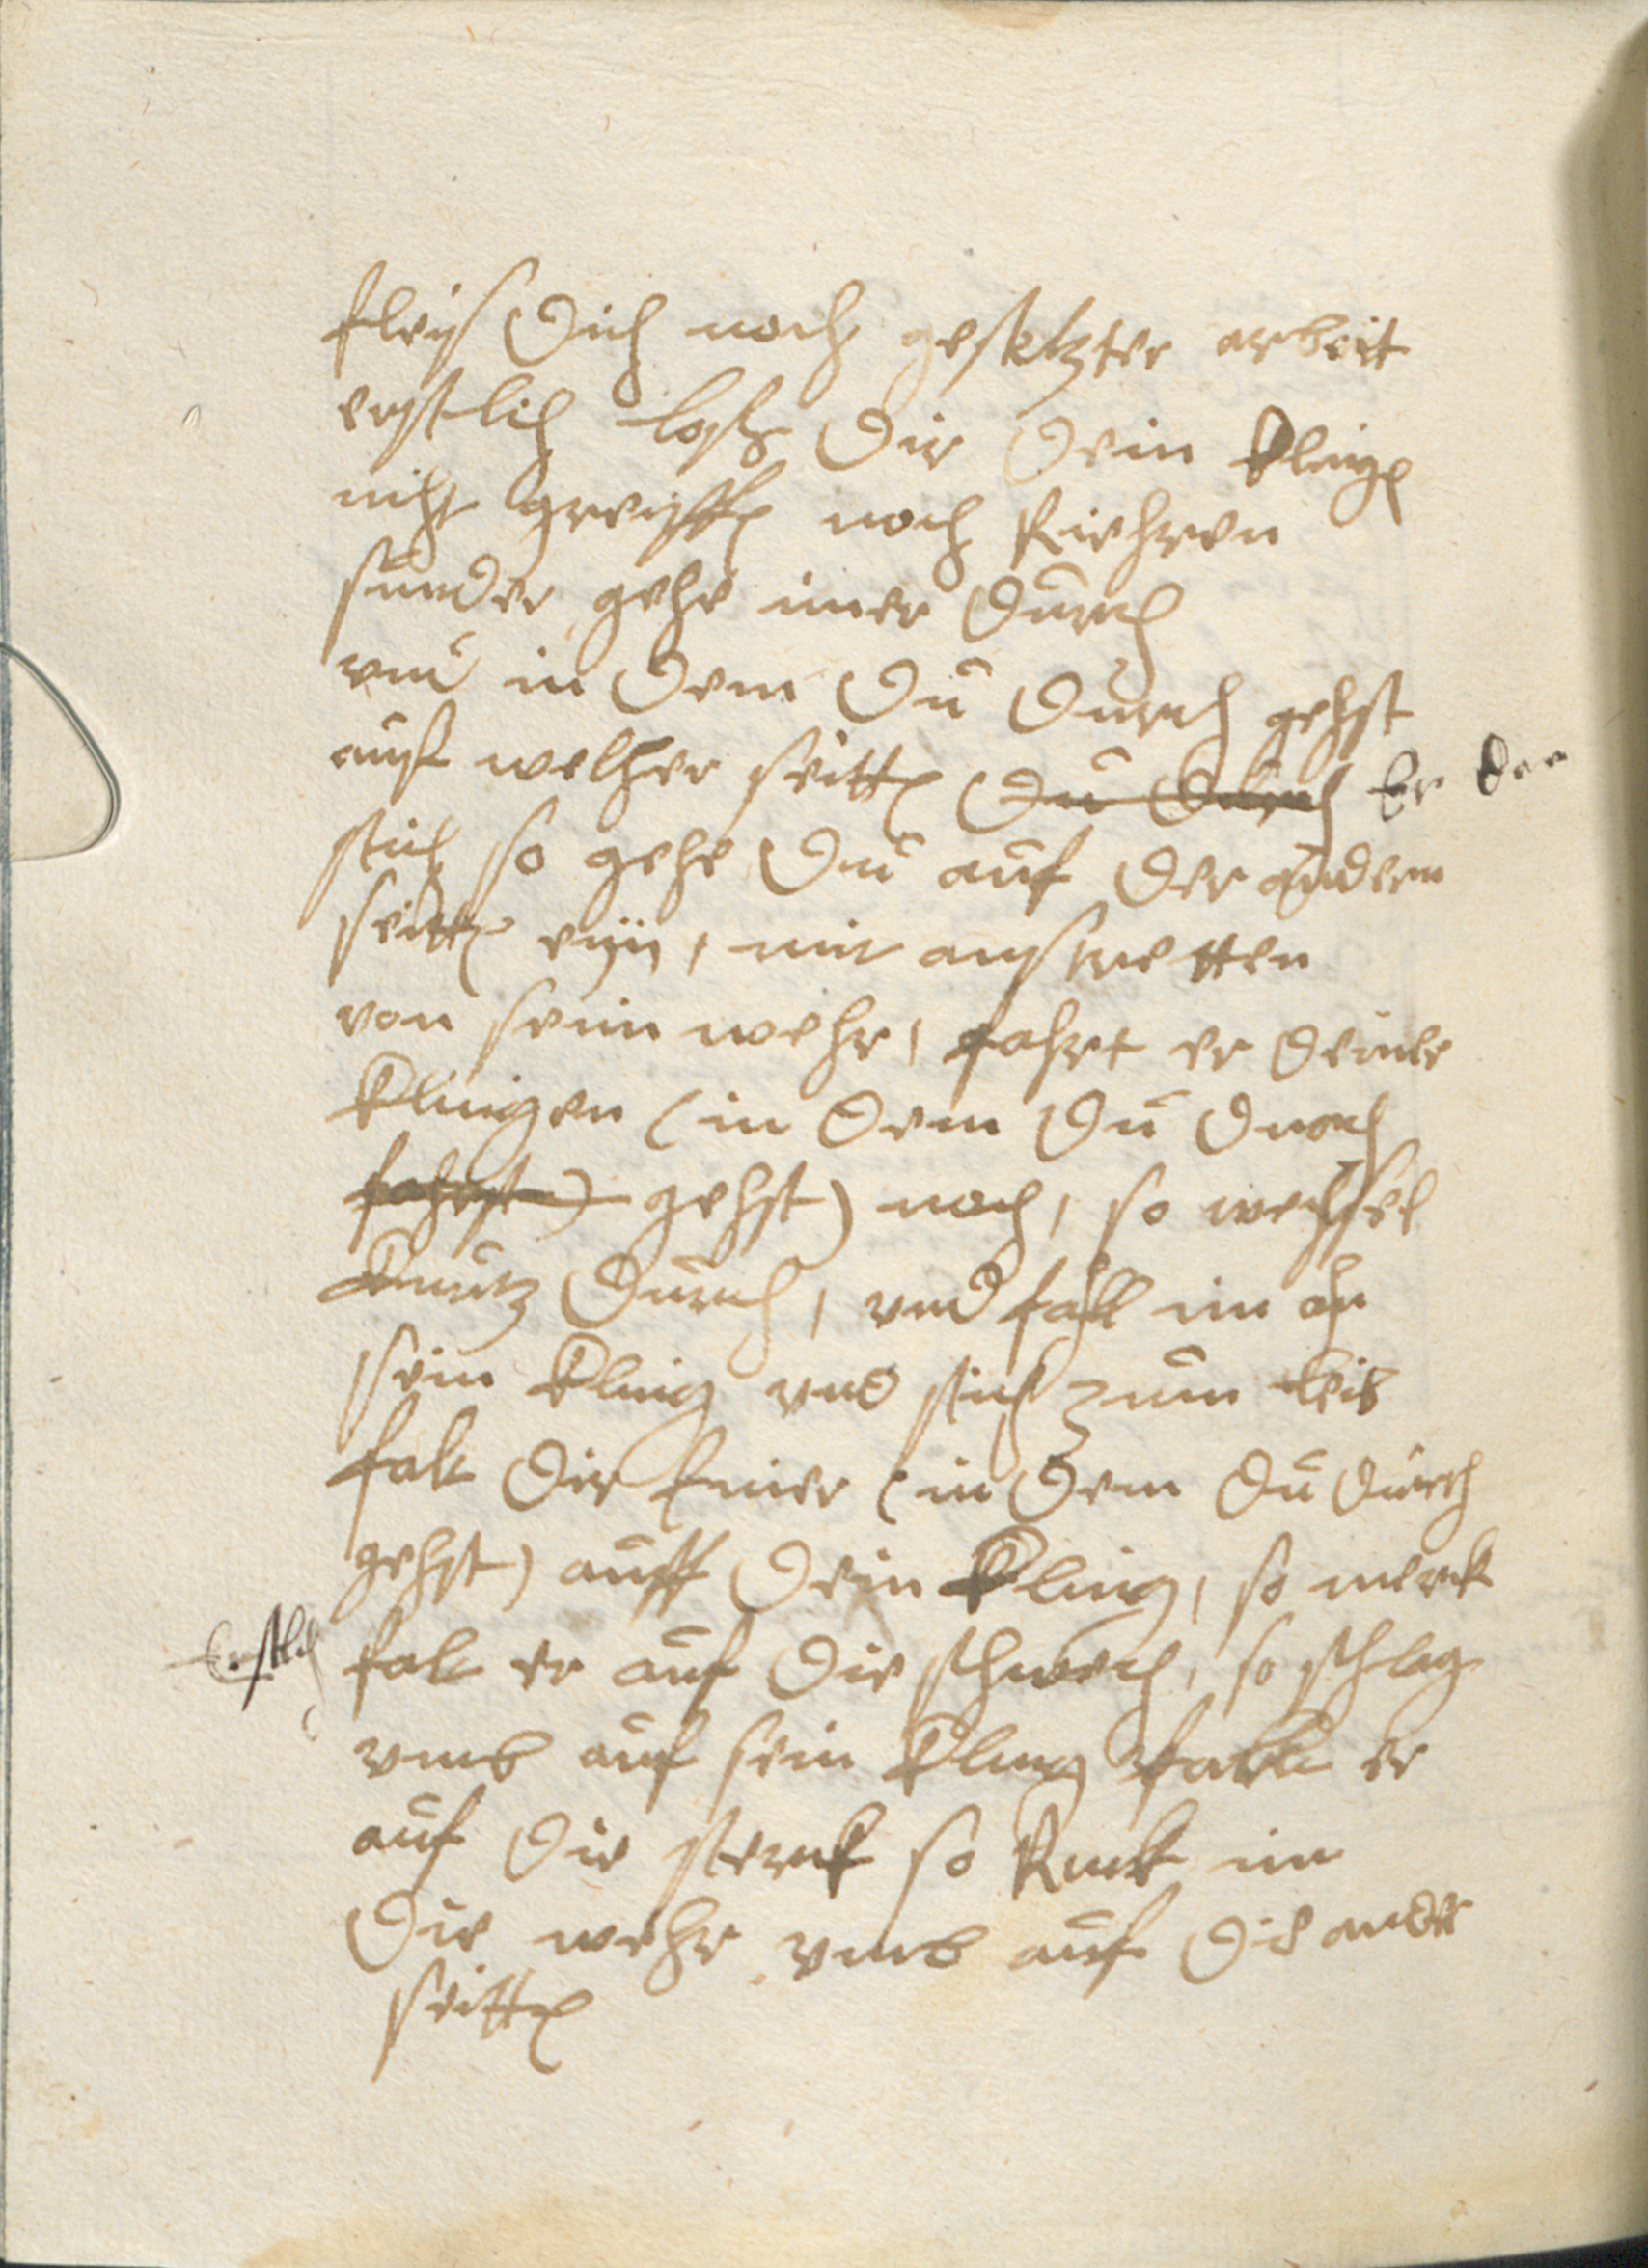 fleis dich noch gesetzter arbeit
erstlich losz dir dein klingen
nicht greiffen noch Riehren
sunder gehe imer durch
vnd in dem du durch gehst
auf welcher seitten du durch Er der
stich so gehe du auf der andern
seitten eyn, mit aus tretten
von seim wehr, fahrt er deiner
klingen (in dem du durch
fahrst) gehst) noch, so wechsel
durch, vnd fall im an
sein kling vnd stich zum leib
falt dir Einer (in dem du durch
gehst) auff dein kling, so merck
Erstlich falt er auf die schwech, so schlag
vmb auf sein kling falt er
auf die sterck so Ruck im
die wehr vmb auf die ander
seitten